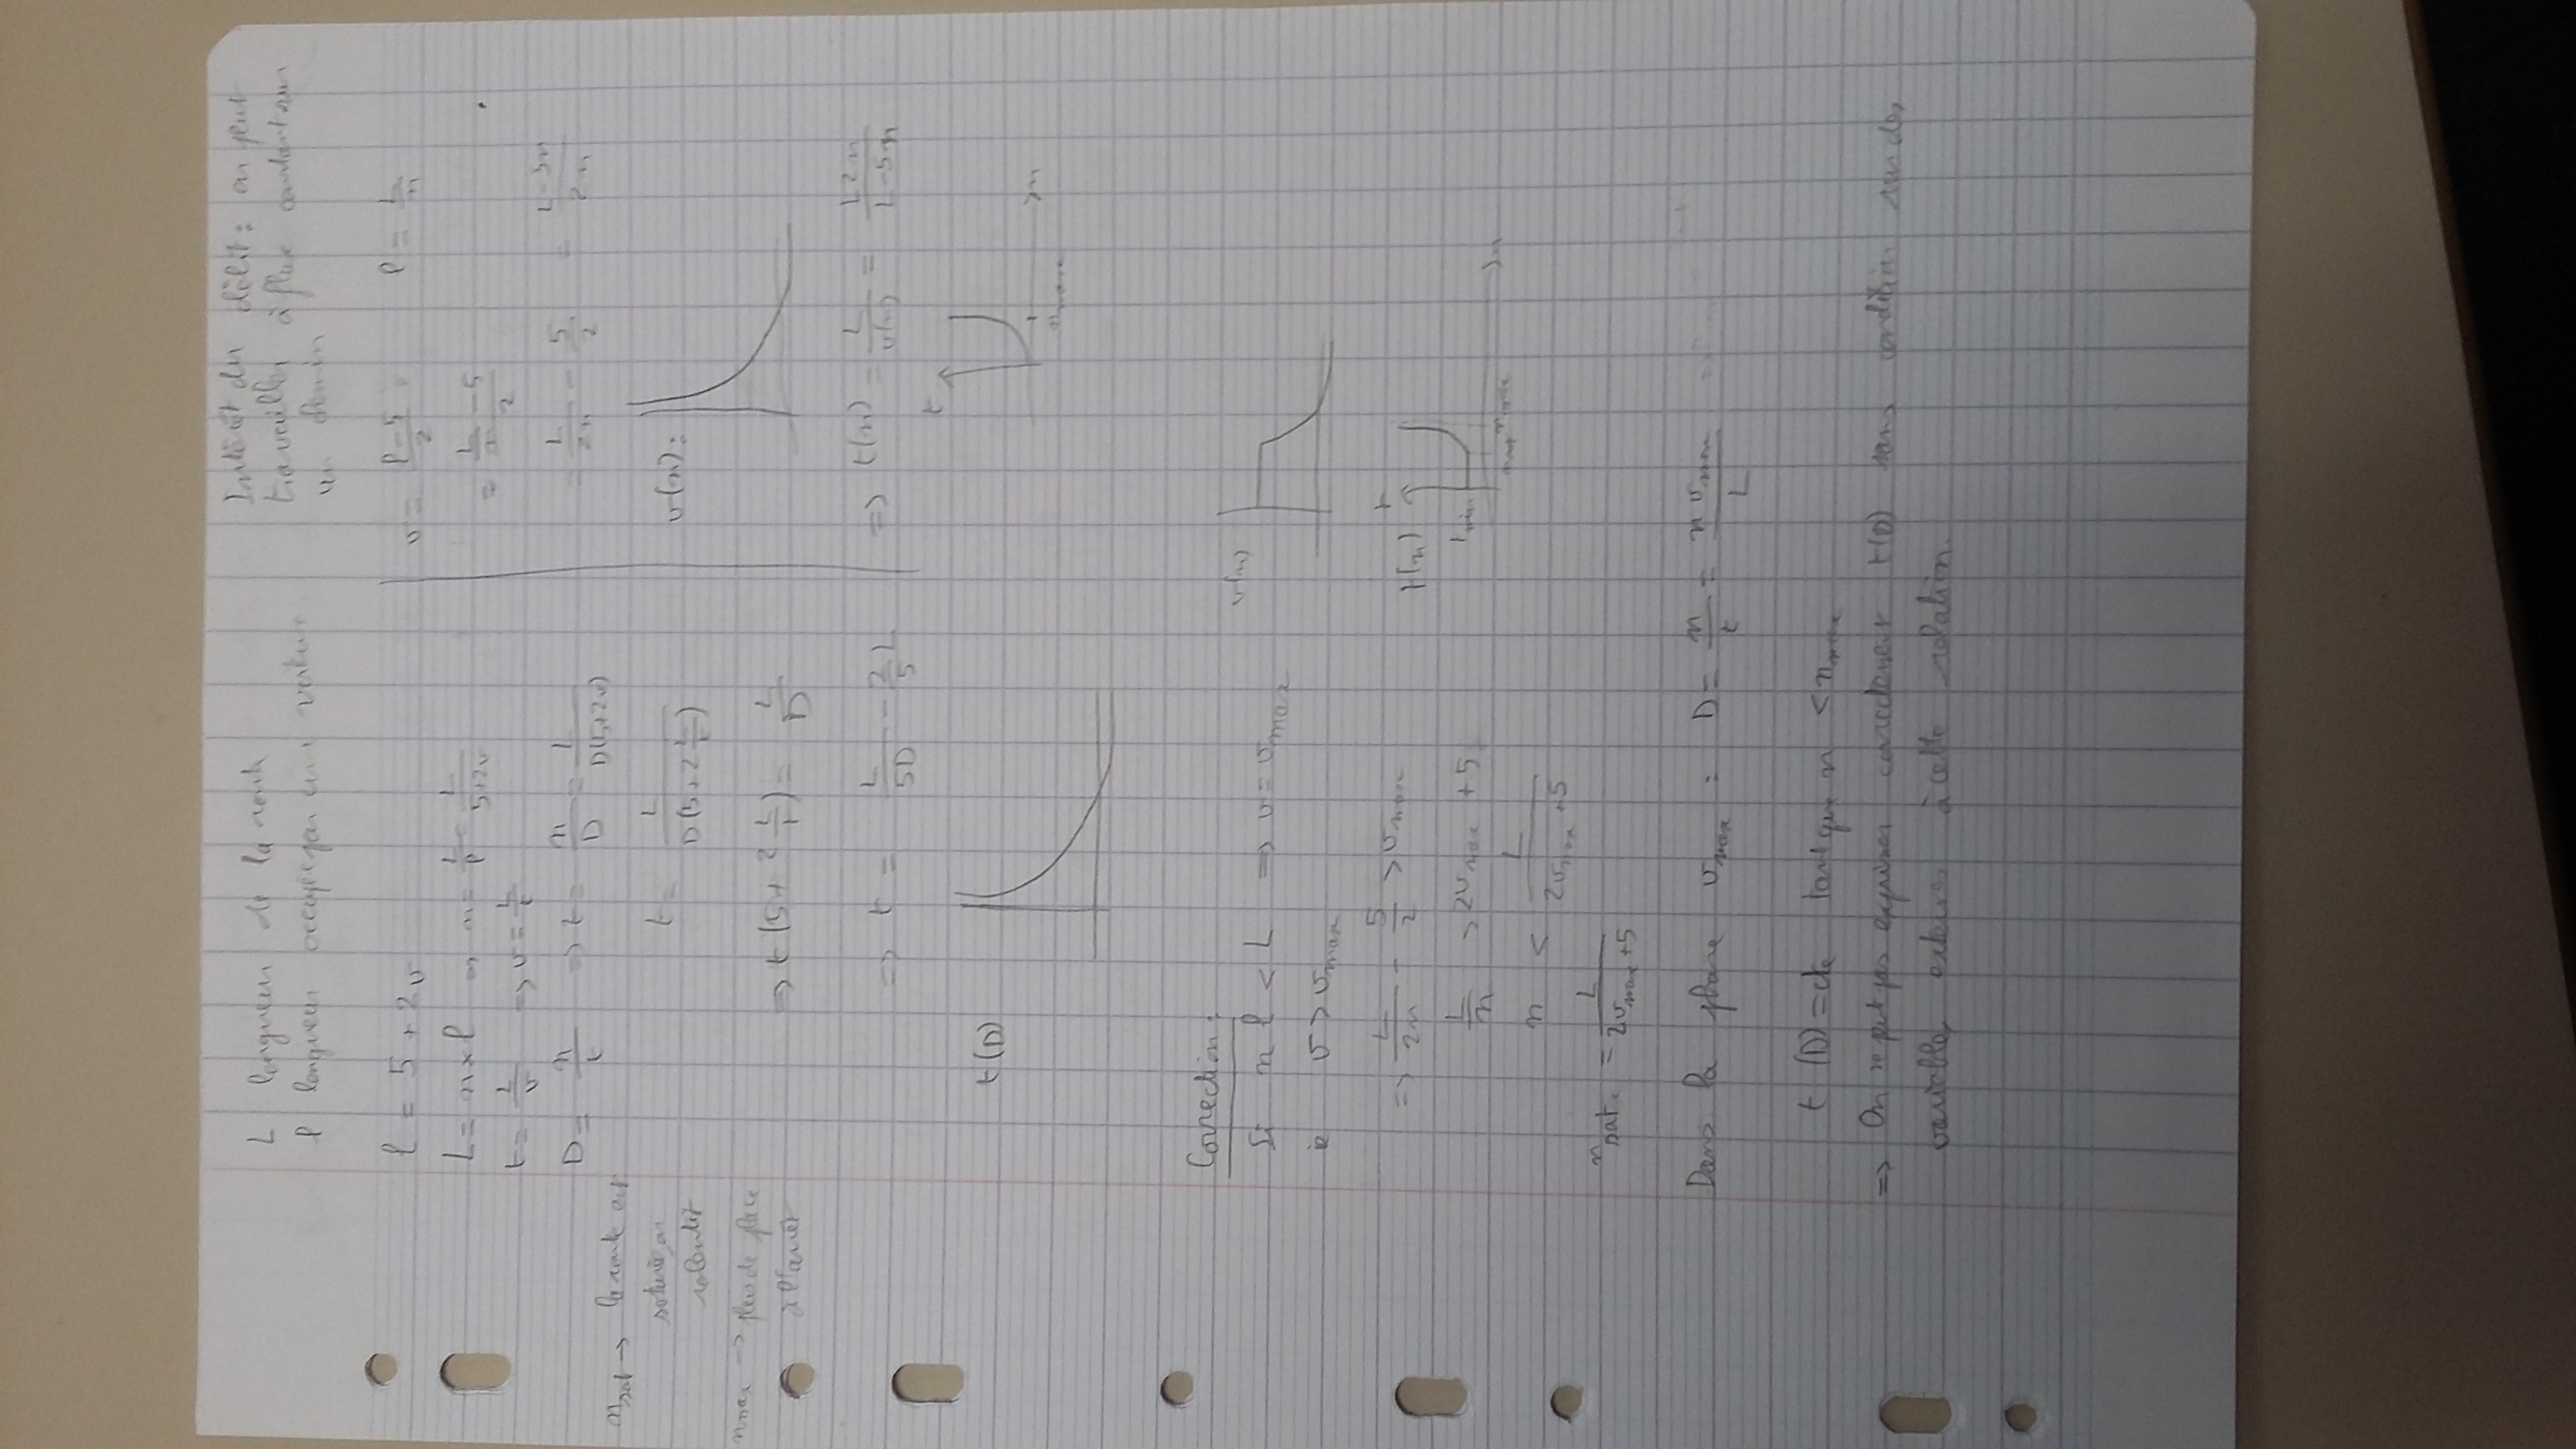 L longueur de la route
l longueur occupée par une voiture
l = 5 + 2v
L = n × l => n = L/l = L/(5+2v)
t = L/v => v = L/t
D = n/t => t = n/D = L/(D(5+2v))
nsat -> la route est
saturée on
ralentit
t = L/(D(5+2 L/t))
nmax -> plus de place
à l'arrêt
=> t(5 + 2 L/t) = L/D
=> t = L/(5D) - 2/5 L
t(D)
Intérêt du débit : on peut
travailler à flux constant sur
un chemin
v = (l-5)/2 l = L/n
= (L/n - 5)/2
= L/2n - 5/2 = (L-5n)/2n
v(n) :
=> t(n) = L/v(n) = L2n/(L-5n)
t
n
nmax
Correction :
Si n l < L => v = vmax
ie v > vmax
=> L/2n - 5/2 > vmax
L/n > 2vmax + 5
n < L/(2vmax + 5)
nsat. = L/(2vmax + 5)
v(n)
t
t(n)
tmin
nsat nmax
n
Dans la phase vmax : D = n/t = n vmax/L
t(D) = cte tant que n < nmax
=> On ne peut pas exprimer correctement t(D) sans condition sur des
variables externes à cette relation.